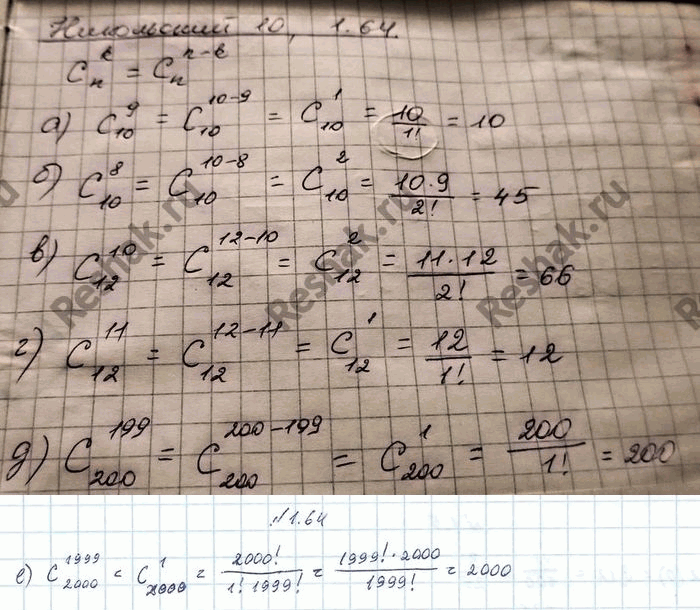 Никольский 10, 1.64.
C_n^k = C_n^{n-k}
а) C_{10}^9 = C_{10}^{10-9} = C_{10}^1 = 10/1! = 10
б) C_{10}^8 = C_{10}^{10-8} = C_{10}^2 = 10·9/2! = 45
в) C_{12}^{10} = C_{12}^{12-10} = C_{12}^2 = 11·12/2! = 66
г) C_{12}^{11} = C_{12}^{12-11} = C_{12}^1 = 12/1! = 12
д) C_{200}^{199} = C_{200}^{200-199} = C_{200}^1 = 200/1! = 200
№1.64
е) C_{2000}^{1999} = C_{2000}^1 = 2000!/1! 1999! = 1999!·2000/1999! = 2000
Reshak.ru
Reshak.ru
Reshak.ru